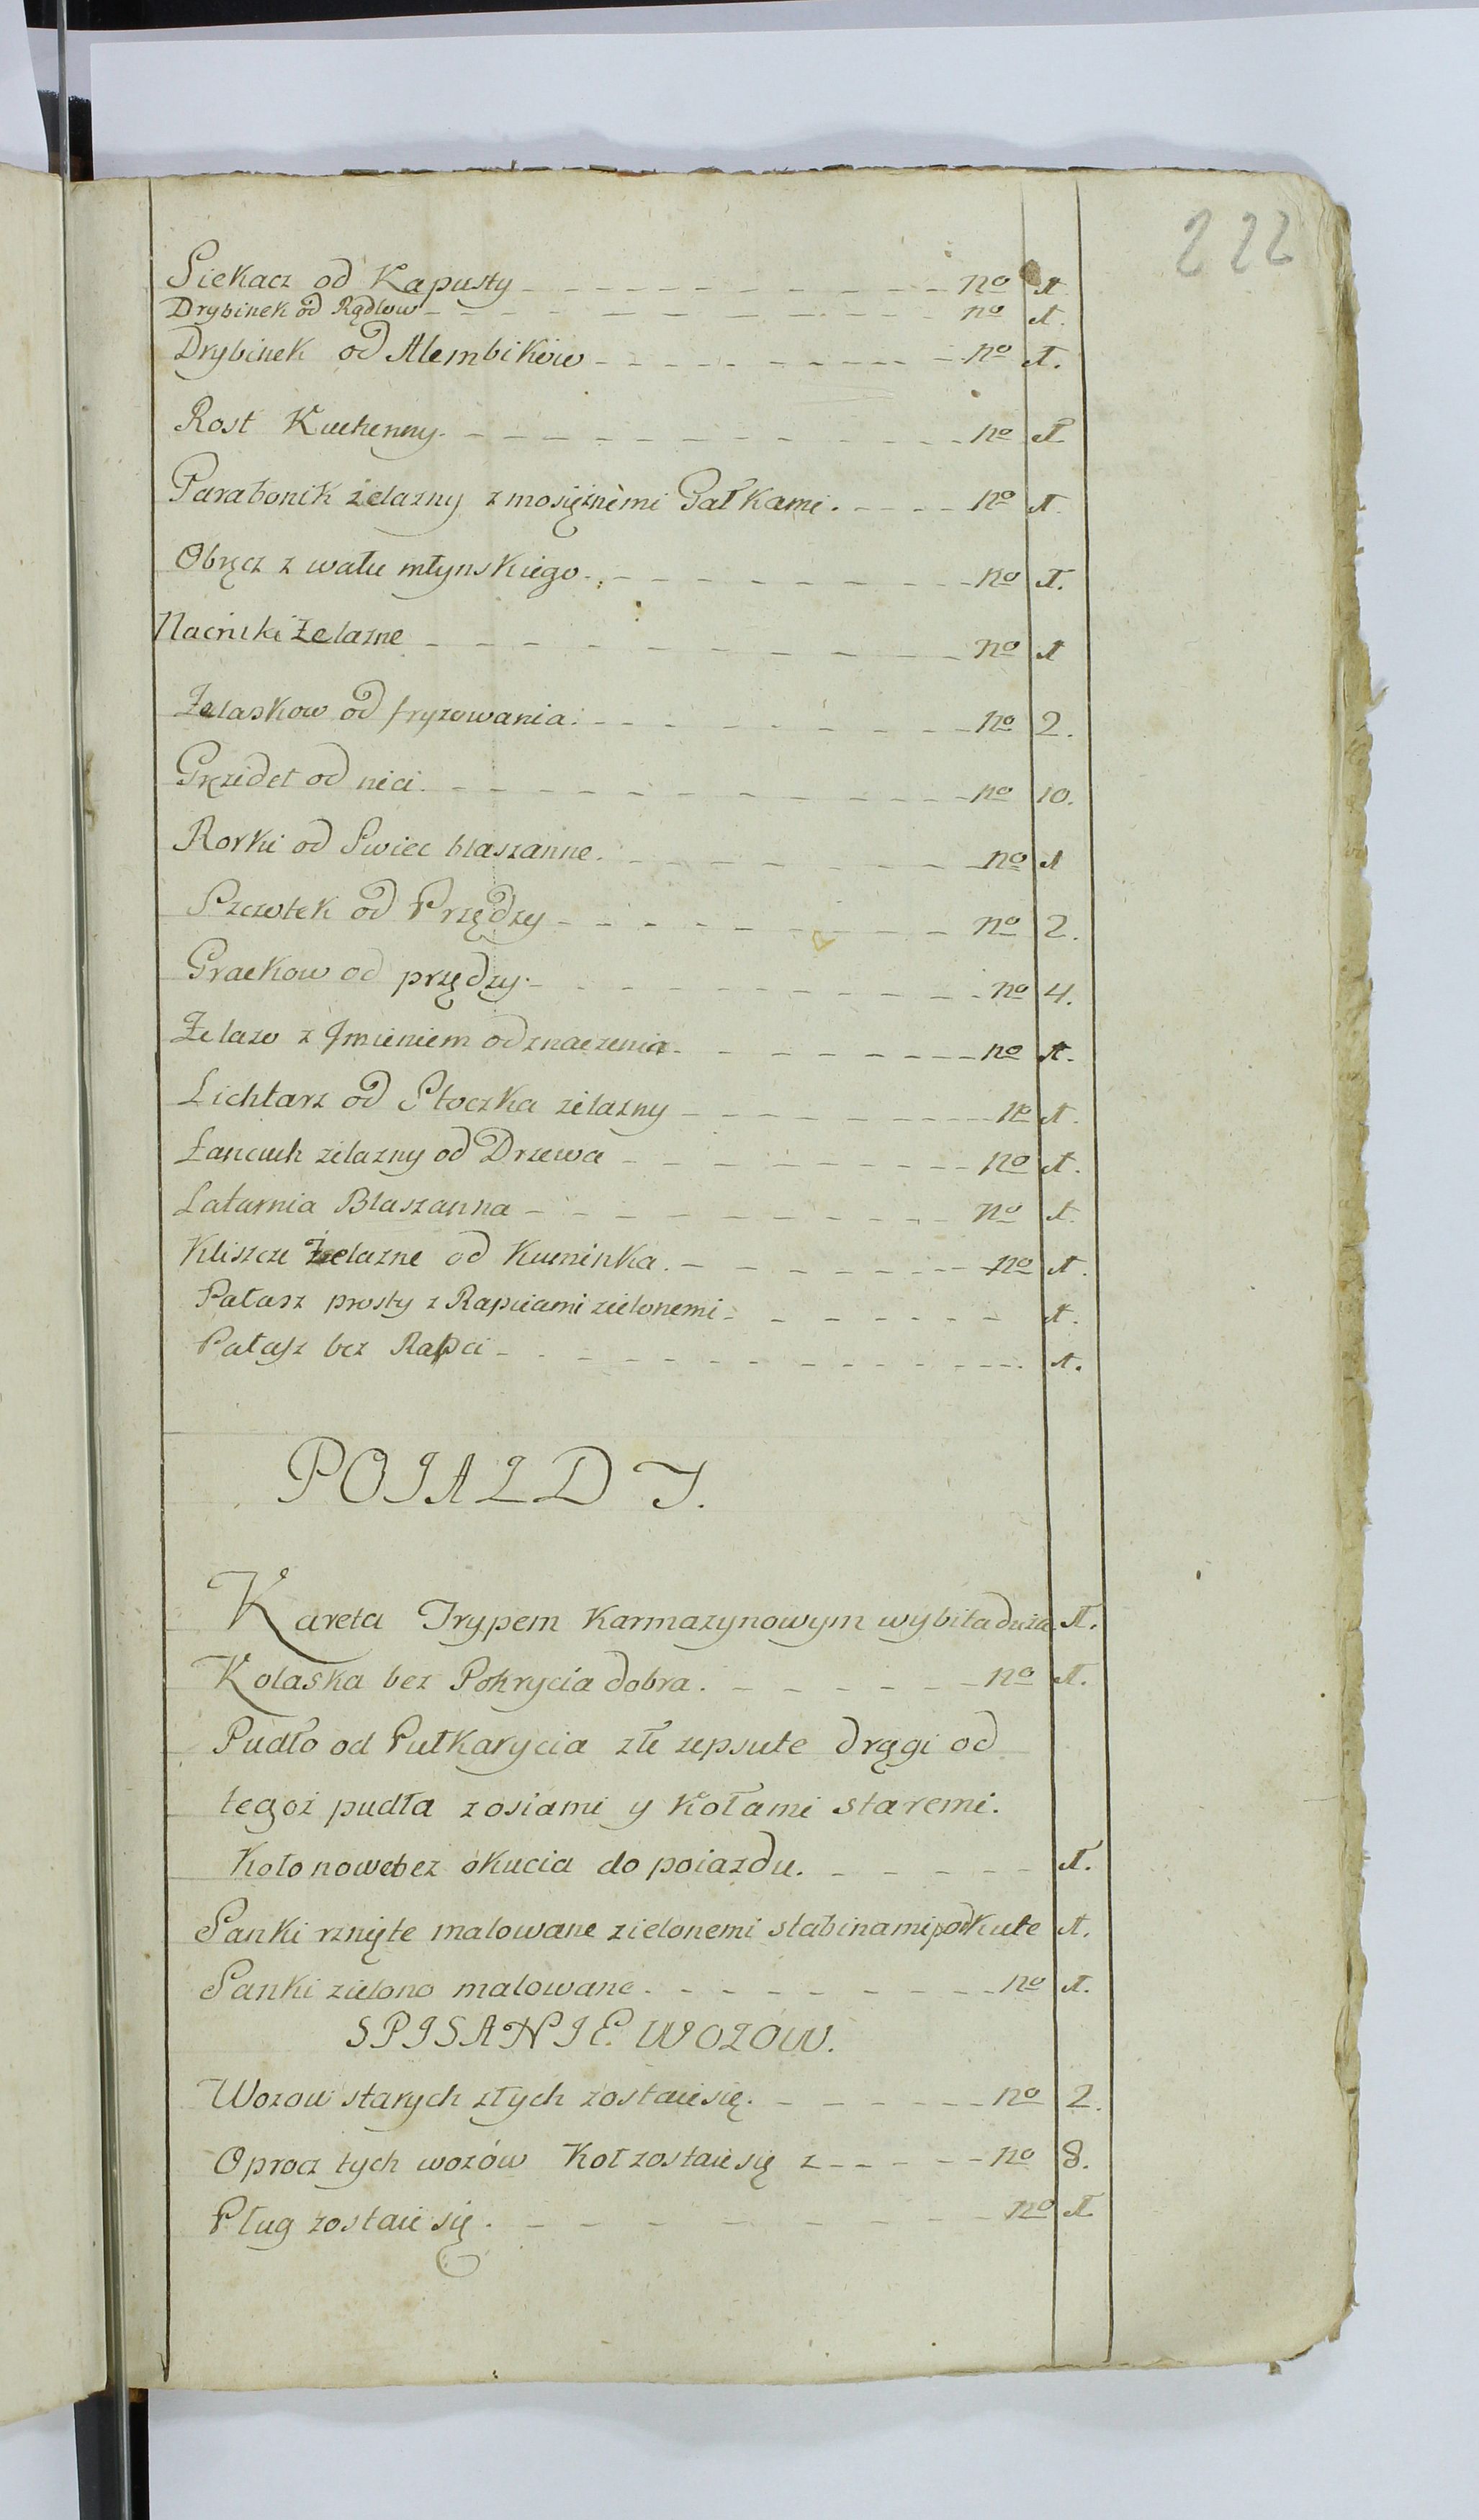 222
Siekacz od Kapusty no 1
Drybinek od Rądlow no 1.
Drybinek od Alembików no 1.
Rost Kuchenny. no 1
Parabonik żelazny z mosiężnemi Gałkami. no 1.
Obręcz z wału młynskiego. no 1.
Naciniki Żelazne no 1
Żelaskow od fryzowania. no 2.
Gręzidet od nici. no 10.
Rorki od Swiec blaszanne. no 1
Szczotek od Przędzy no 2.
Grackow od przędzy. no 4.
Żelazo z Jmieniem od znaczenia no 1.
Lichtarz od Stoczka zelazny no 1.
Łancuch zelazny od Drzewa no 1.
Latarnia Blaszanna no 1.
Kliszcze Żelazne od Kuminka. no 1.
Pałasz prosty z Rapciami zielonemi 1.
Pałasz bez Rapci 1.
POIAZDY.
Kareta Trypem Karmazynowym wybita duza 1.
Kolaska bez Pokrycia dobra. no 1.
Pudło od Pułkarycia złe zepsute drągi od
tegoż pudła z osiami y Kołami staremi.
Koło nowe bez okucia do poiazdu. 1.
Sanki rznięte malowane zielonemi słabinami podkute 1.
Sanki zielono malowane. no 1.
SPISANIE WOZÓW.
Wozow starych złych zostaie się. no 2.
Oprocz tych wozów Koł zostaie się z no 8.
Pług zostaie się. no 1